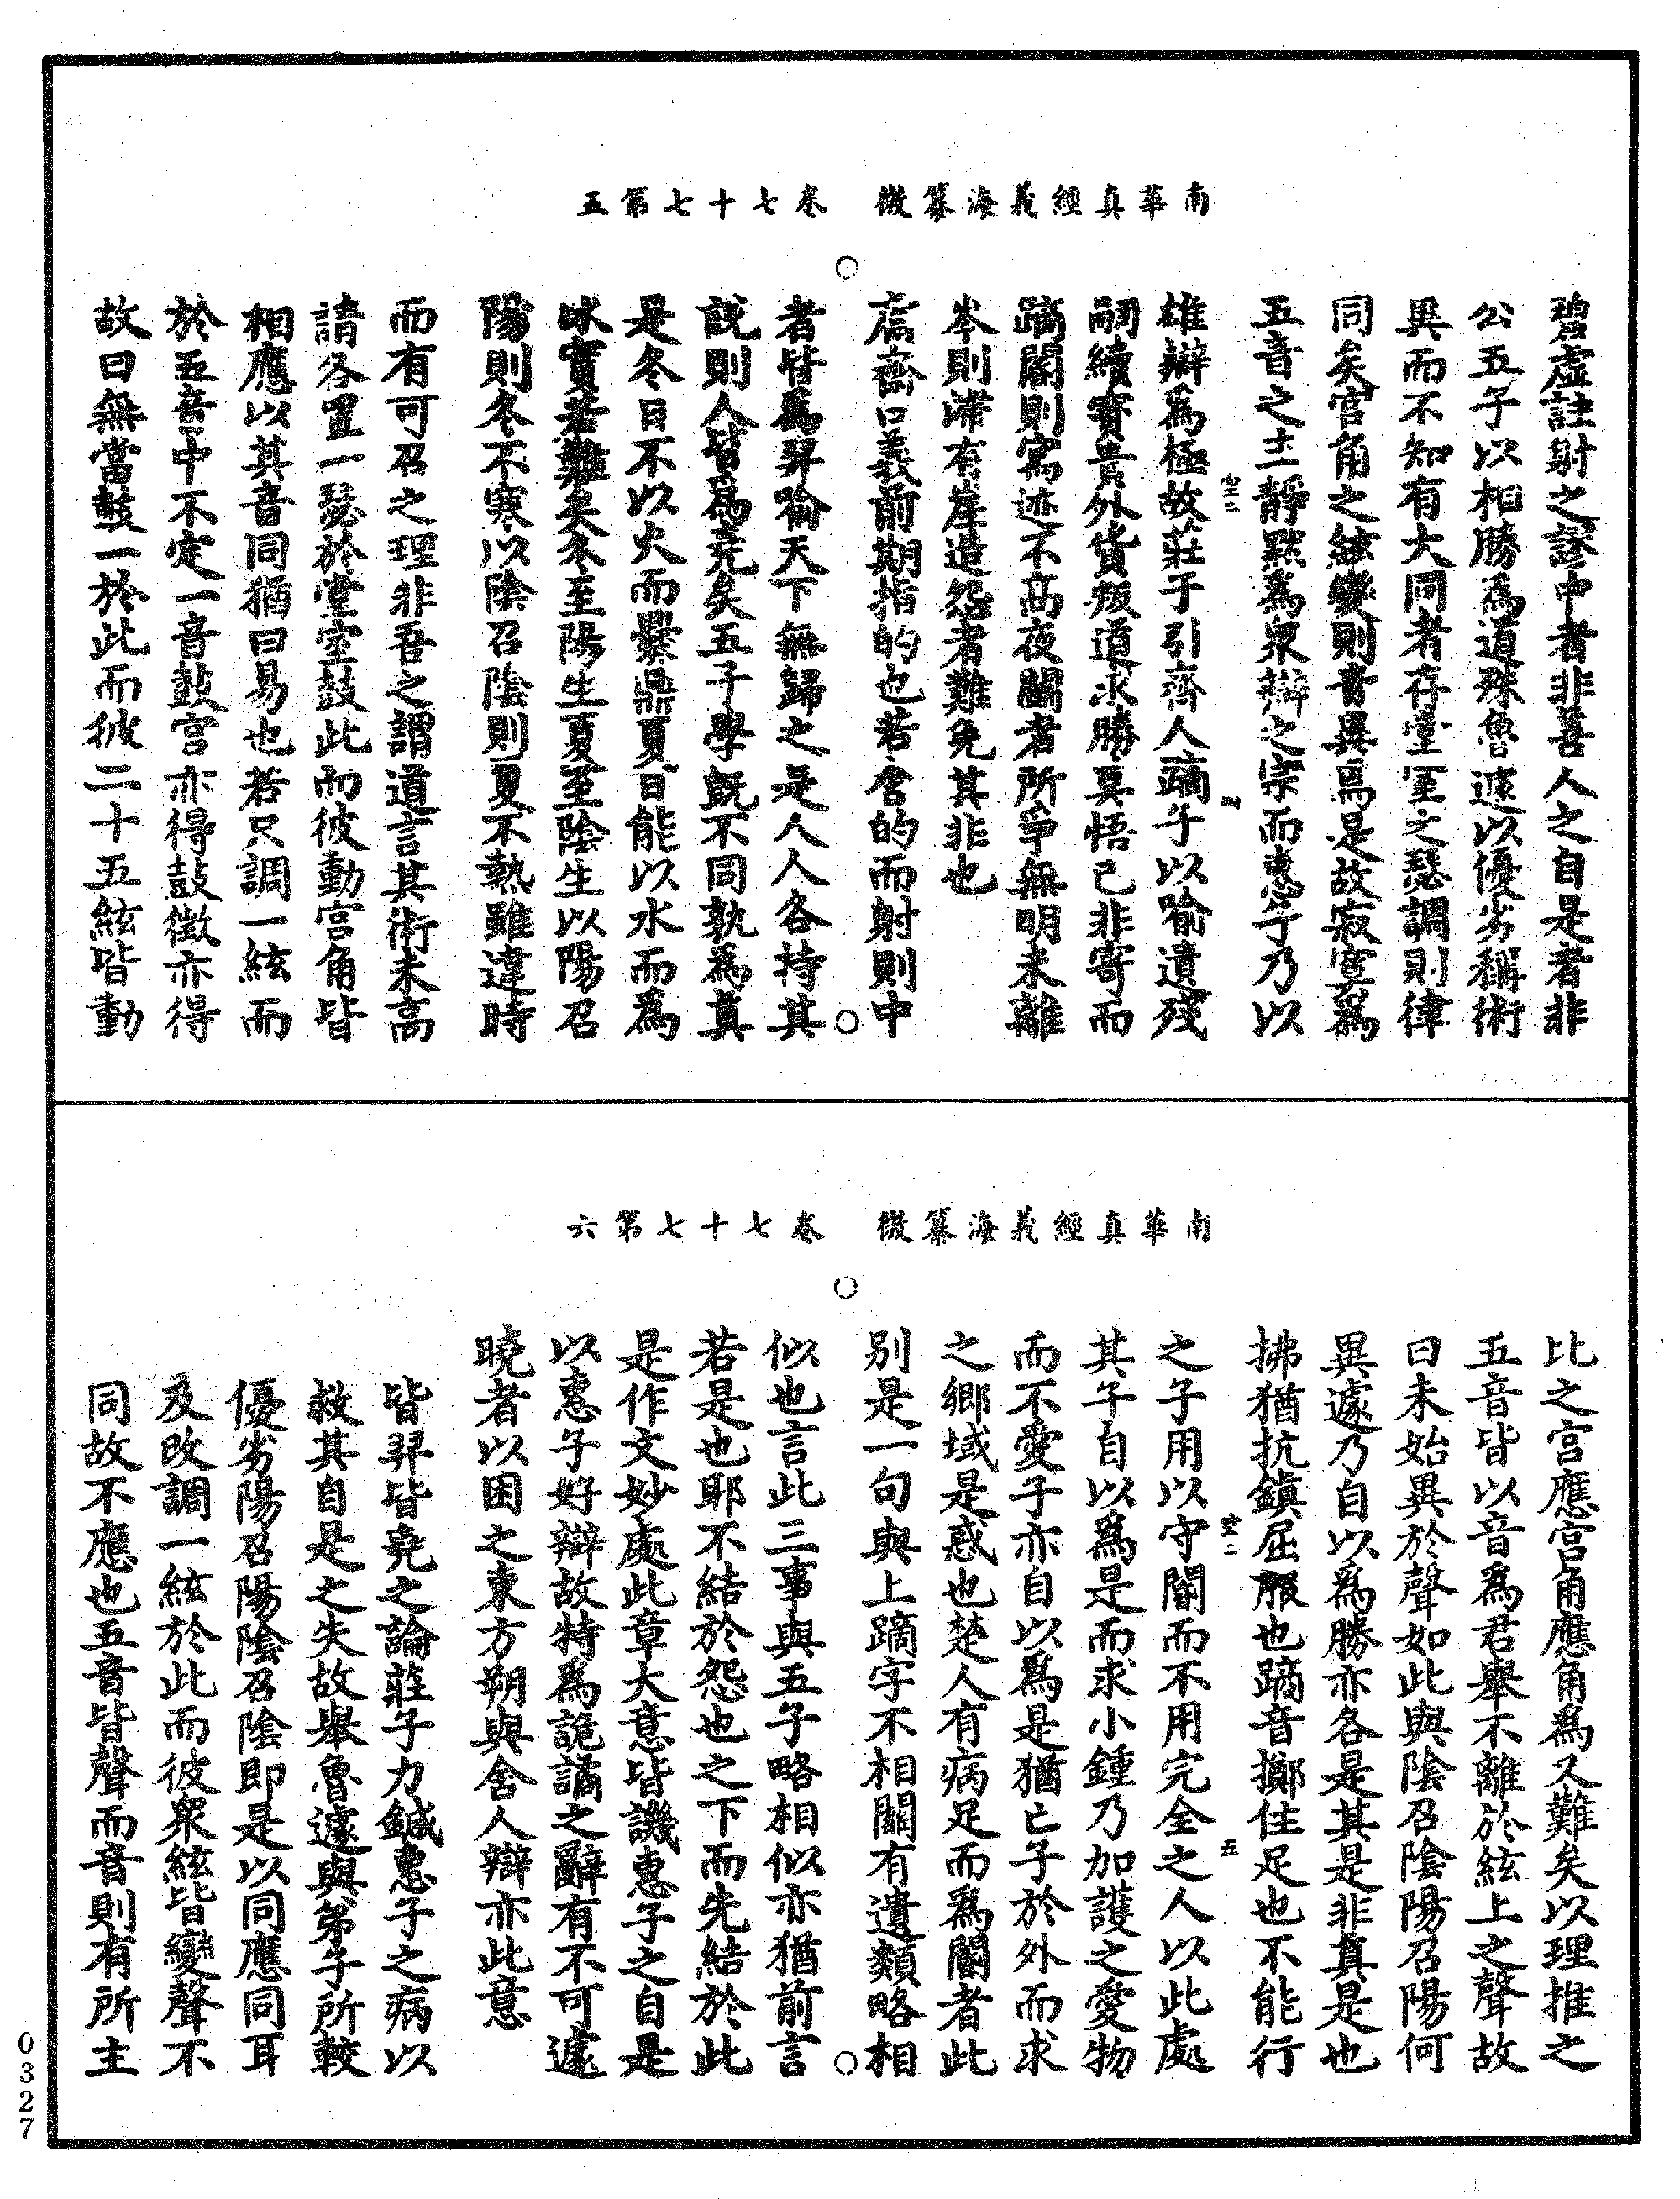 南華真經義海纂微　卷七十七第五
碧虛註射之謬中者非善人之自是者非
公五子以相勝為道殊魯遽以優劣稱術
異而不知有大同者存堂室之瑟調則律
同矣宮角之絃變則音異焉是故寂寞為
五音之主靜默為衆辯之宗而惠子乃以
雄辯為極故莊子引齊人蹢子以喻遺殘
嗣續實貴外貨叛道求勝要悟己非寄而
蹢閽則寓迹不高夜鬭者所爭無明未離
岑則滯有崖造怨者難免其非也
鬳齋口義前期指的也若舍的而射則中
者皆為羿喻天下無歸之是人人各持其
說則人皆為堯矣五子學既不同孰為真
是冬日不以火而爨鼎夏日能以水而為
冰實若難矣冬至陽生夏至陰生以陽召
陽則冬不寒以陰召陰則夏不熱雖違時
而有可召之理非吾之謂道言其術未高
請各置一瑟於堂室鼓此而彼動宮角皆
相應以其音同猶曰易也若只調一絃而
於五音中不定一音鼓宮亦得鼓徵亦得
故曰無當鼓一於此而彼二十五絃皆動
南華真經義海纂微　卷七十七第六
比之宮應宮角應角為又難矣以理推之
五音皆以音為君舉不離於絃上之聲故
曰未始異於聲如此與陰召陰陽召陽何
異遽乃自以為勝亦各是其是非真是也
拂猶抗鎮屈服也蹢音擲住足也不能行
之子用以守閽而不用完全之人以此處
其子自以為是而求小鍾乃加護之愛物
而不愛子亦自以為是猶亡子於外而求
之鄉域是惑也楚人有病足而為閽者此
別是一句與上蹢字不相關有遺類略相
似也言此三事與五子略相似亦猶前言
若是也耶不結於怨也之下而先結於此
是作文妙處此章大意皆譏惠子之自是
以惠子好辯故特為詭譎之辭有不可遽
曉者以困之東方朔與舍人辯亦此意
皆羿皆堯之論莊子力鍼惠子之病以
救其自是之失故舉魯遽與弟子所較
優劣陽召陽陰召陰即是以同應同耳
及改調一絃於此而彼衆絃皆變聲不
同故不應也五音皆聲而音則有所主
0327